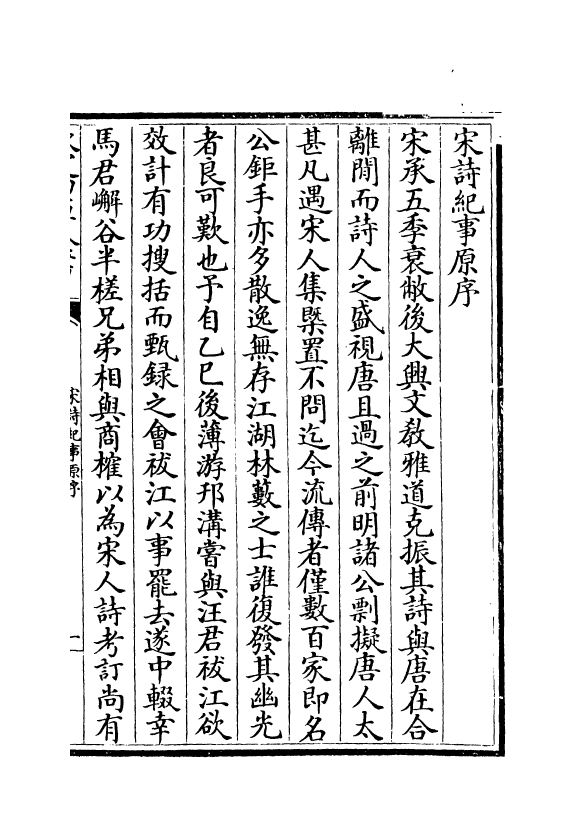 宋詩紀事原序
宋承五季衰敝後大興文教雅道克振其詩與唐在合
離閒而詩人之盛視唐且過之前明諸公剽擬唐人太
甚凡遇宋人集槩置不問迄今流傳者僅數百家即名
公鉅手亦多散逸無存江湖林藪之士誰復發其幽光
者良可歎也予自乙巳後薄游邗溝嘗與汪君祓江欲
效計有功搜括而甄録之會祓江以事罷去遂中輟幸
馬君嶰谷半槎兄弟相與商搉以為宋人詩考訂尚有
宋詩紀事原序
一